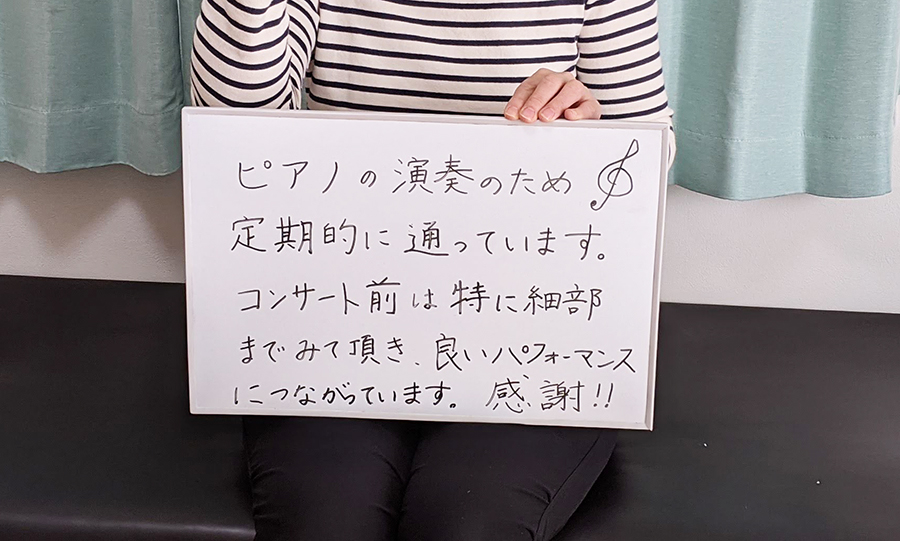 ピアノの演奏のため
定期的に通っています。
コンサート前は特に細部
までみて頂き、良いパフォーマンス
につながっています。 感謝!!